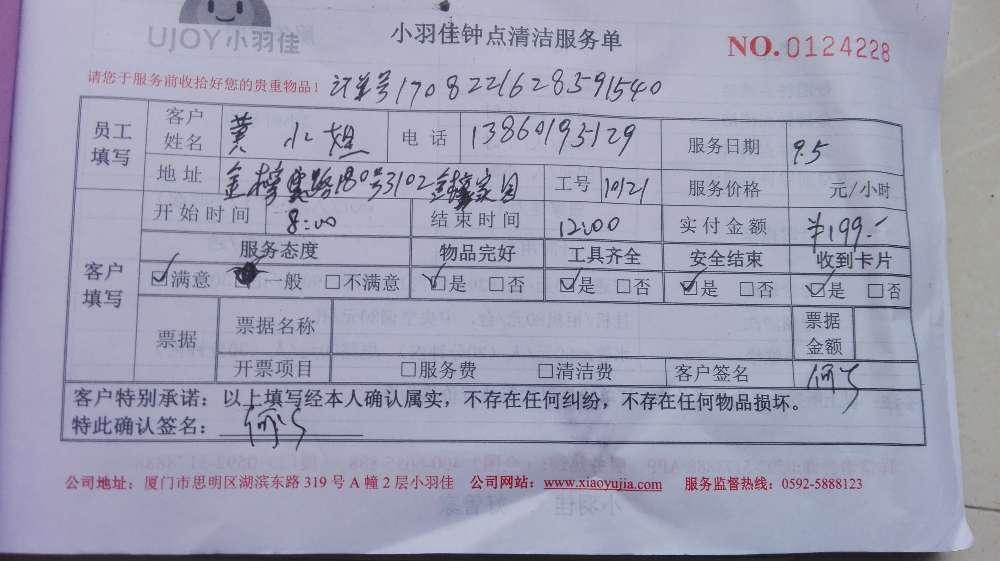 UJOY小羽佳 小羽佳钟点清洁服务单 NO.0124228
请您于服务前收拾好您的贵重物品！ 订单号170822162859 1540
员工填写 客户姓名 黄小姐 电话 13860193129 服务日期 9.5
地址 金榜路180号3102 工号 10121 服务价格 元/小时
开始时间 8:00 结束时间 12:00 实付金额 ¥199.-
客户填写 服务态度 物品完好 工具齐全 安全结束 收到卡片
☑满意 一般 □不满意 ☑是 □否 ☑是 □否 ☑是 □否 ☑是 □否
票据 票据名称 票据金额
开票项目 □服务费 □清洁费 客户签名
客户特别承诺：以上填写经本人确认属实，不存在任何纠纷，不存在任何物品损坏。
特此确认签名：
公司地址：厦门市思明区湖滨东路 319 号 A 幢 2 层小羽佳 公司网站：www.xiaoyujia.com 服务监督热线：0592-5888123